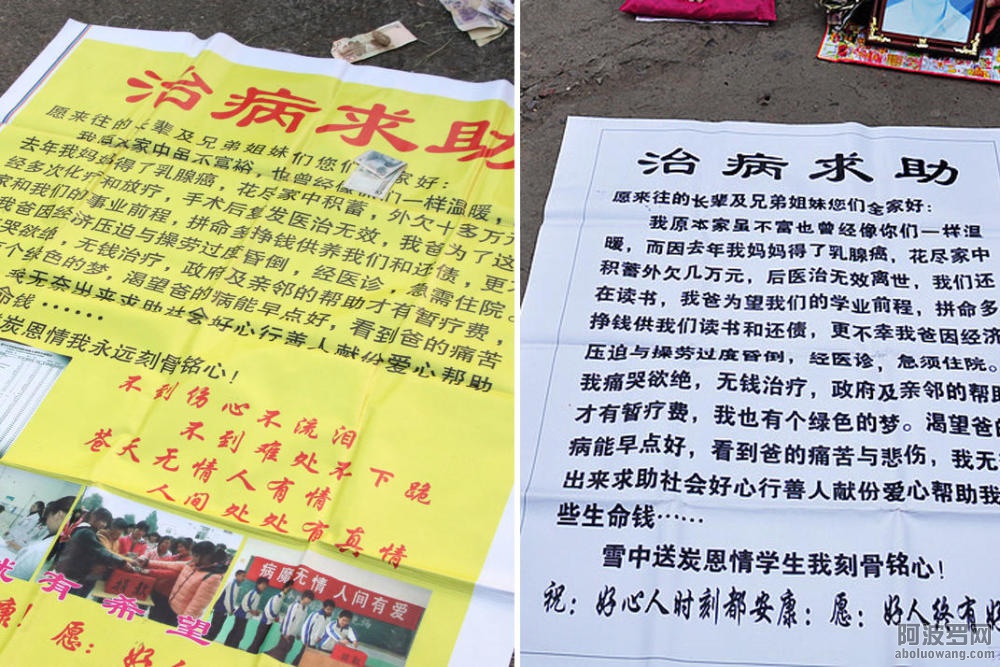 治病求助
愿来往的长辈及兄弟姐妹们您们 家好：
我原本家中虽不富裕，也曾经像 们一样温暖，
去年我妈妈得了乳腺癌，花尽家中积蓄，外欠十多万元
经多次化疗和放疗，手术后复发医治无效，我爸为了这
家和我们的事业前程，拼命多挣钱供养我们和还债，更不
我爸因经济压迫与操劳过度昏倒，经医诊，急需住院。
哭欲绝，无钱治疗，政府及亲邻的帮助才有暂疗费，
个绿色的梦，渴望爸的病能早点好，看到爸的痛苦
我无奈出来求助社会好心行善人献份爱心帮助
命钱……
送炭恩情我永远刻骨铭心！
不到伤心不流泪
不到难处不下跪
苍天无情人有情
人间处处有真情
病魔无情 人间有爱
有希望
康！
愿：好人
治病求助
愿来往的长辈及兄弟姐妹您们全家好：
我原本家虽不富也曾经像你们一样温
暖，而因去年我妈妈得了乳腺癌，花尽家中
积蓄外欠几万元，后医治无效离世，我们还
在读书，我爸为望我们的学业前程，拼命多
挣钱供我们读书和还债，更不幸我爸因经济
压迫与操劳过度昏倒，经医诊，急须住院。
我痛哭欲绝，无钱治疗，政府及亲邻的帮助
才有暂疗费，我也有个绿色的梦。渴望爸的
病能早点好，看到爸的痛苦与悲伤，我无
出来求助社会好心行善人献份爱心帮助我
些生命钱……
雪中送炭恩情学生我刻骨铭心！
祝：好心人时刻都安康；愿：好人终有好
阿波罗网
aboluowang.com